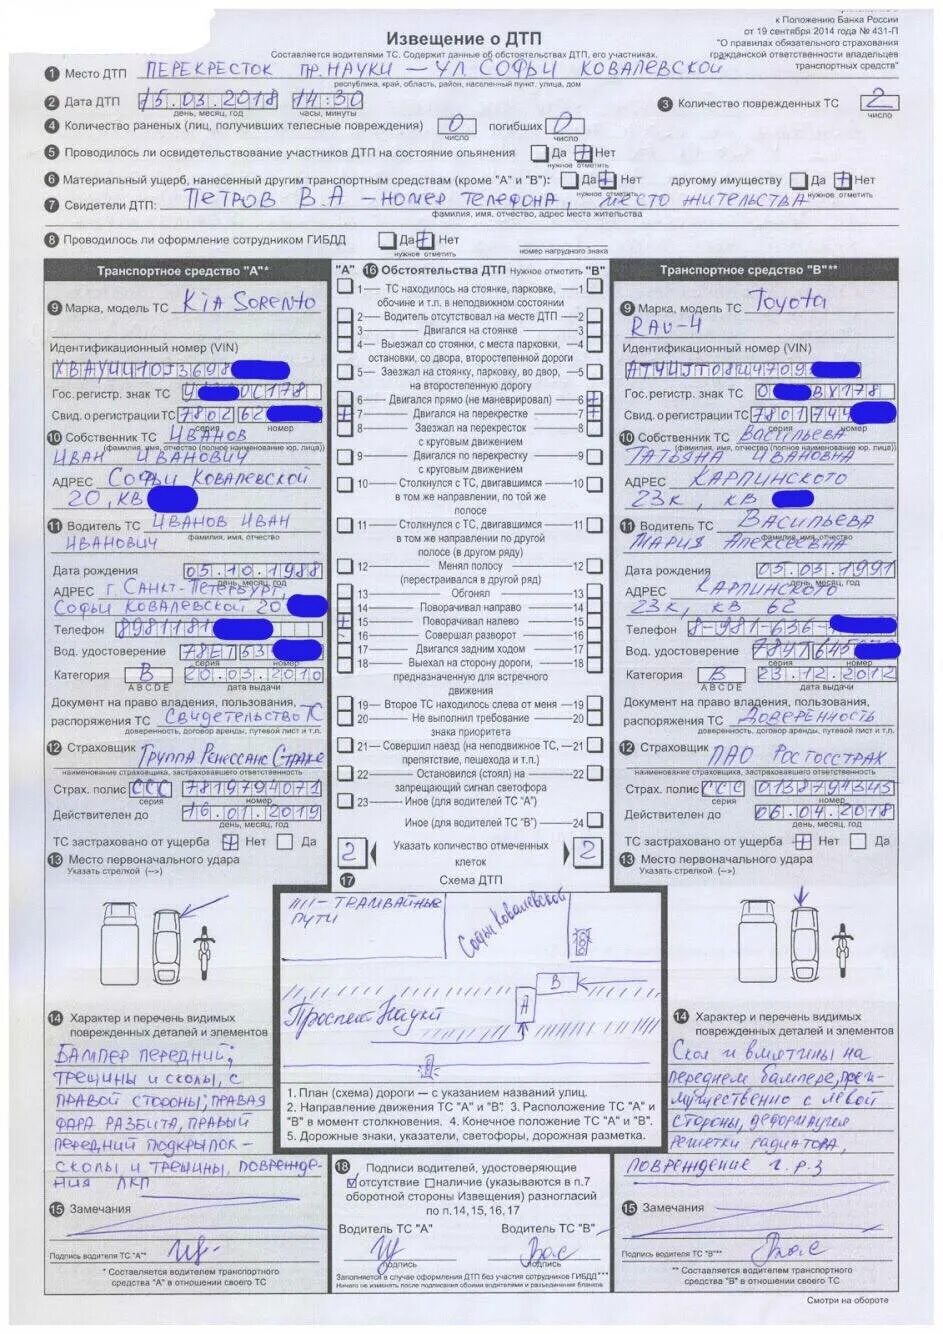 к Положению Банка России
от 19 сентября 2014 года № 431-П
"О правилах обязательного страхования
гражданской ответственности владельцев
транспортных средств"
Извещение о ДТП
Составляется водителями ТС. Содержит данные об обстоятельствах ДТП, его участниках.
1 Место ДТП ПЕРЕКРЕСТОК пр. НАУКИ – УЛ СОФЬИ КОВАЛЕВСКОЙ
республика, край, область, район, населенный пункт, улица, дом
2 Дата ДТП 15.03.2018 14:30
день, месяц, год часы, минуты
3 Количество поврежденных ТС 2
число
4 Количество раненых (лиц, получивших телесные повреждения) 0 погибших 0
число число
5 Проводилось ли освидетельствование участников ДТП на состояние опьянения Да Нет
нужное отметить
6 Материальный ущерб, нанесенный другим транспортным средствам (кроме "А" и "В"): Да Нет другому имуществу Да Нет
нужное отметить нужное отметить
7 Свидетели ДТП: ПЕТРОВ В.А – НОМЕР ТЕЛЕФОНА, МЕСТО ЖИТЕЛЬСТВА
фамилия, имя, отчество, адрес места жительства
8 Проводилось ли оформление сотрудником ГИБДД Да Нет
нужное отметить номер нагрудного знака
Транспортное средство "А"*
9 Марка, модель ТС Kia Sorento
Идентификационный номер (VIN)
Гос. регистр. знак ТС
Свид. о регистрации ТС 7802 62
серия номер
10 Собственник ТС ИВАНОВ
(фамилия, имя, отчество (полное наименование юр. лица))
ИВАН ИВАНОВИЧ
АДРЕС СОФЬИ КОВАЛЕВСКОЙ
20, КВ
11 Водитель ТС ИВАНОВ ИВАН
фамилия, имя, отчество
ИВАНОВИЧ
Дата рождения 05.10.1988
день, месяц, год
АДРЕС г. САНКТ-ПЕТЕРБУРГ,
СОФЬИ КОВАЛЕВСКОЙ 20
Телефон 8981181
Вод. удостоверение
серия номер
Категория В 20.03.2010
A B C D E дата выдачи
Документ на право владения, пользования,
распоряжения ТС Свидетельство ТС
доверенность, договор аренды, путевой лист и т.п.
12 Страховщик Группа Ренессанс Страх
наименование страховщика, застраховавшего ответственность
Страх. полис ССС 7819794071
серия номер
Действителен до 16.01.2019
день, месяц, год
ТС застраховано от ущерба Нет Да
13 Место первоначального удара
Указать стрелкой (-->)
14 Характер и перечень видимых
поврежденных деталей и элементов
БАМПЕР ПЕРЕДНИЙ;
ТРЕЩИНЫ И СКОЛЫ, С
ПРАВОЙ СТОРОНЫ; ПРАВАЯ
ФАРА РАЗБИТА, ПРАВЫЙ
ПЕРЕДНИЙ ПОДКРЫЛОК –
СКОЛЫ И ТРЕЩИНЫ, ПОВРЕЖДЕ-
НИЯ ЛКП
15 Замечания
Подпись водителя ТС "А"*
* Составляется водителем транспортного
средства "А" в отношении своего ТС
"А" 16 Обстоятельства ДТП Нужное отметить "В"
1 ТС находилось на стоянке, парковке, 1
обочине и т.п. в неподвижном состоянии
2 Водитель отсутствовал на месте ДТП 2
3 Двигался на стоянке 3
4 Выезжал со стоянки, с места парковки, 4
остановки, со двора, второстепенной дороги
5 Заезжал на стоянку, парковку, во двор, 5
на второстепенную дорогу
6 Двигался прямо (не маневрировал) 6
7 Двигался на перекрестке 7
8 Заезжал на перекресток 8
с круговым движением
9 Двигался по перекрестку 9
с круговым движением
10 Столкнулся с ТС, двигавшимся 10
в том же направлении, по той же
полосе
11 Столкнулся с ТС, двигавшимся 11
в том же направлении по другой
полосе (в другом ряду)
12 Менял полосу 12
(перестраивался в другой ряд)
13 Обгонял 13
14 Поворачивал направо 14
15 Поворачивал налево 15
16 Совершал разворот 16
17 Двигался задним ходом 17
18 Выехал на сторону дороги, 18
предназначенную для встречного
движения
19 Второе ТС находилось слева от меня 19
20 Не выполнил требование 20
знака приоритета
21 Совершил наезд (на неподвижное ТС, 21
препятствие, пешехода и т.п.)
22 Остановился (стоял) на 22
запрещающий сигнал светофора
23 Иное (для водителей ТС "А")
Иное (для водителей ТС "В") 24
2 Указать количество отмеченных 2
клеток
17 Схема ДТП
ТРАМВАЙНЫЕ
ПУТИ
Софьи Ковалевской
В
А
Проспект Науки
1. План (схема) дороги — с указанием названий улиц.
2. Направление движения ТС "А" и "В". 3. Расположение ТС "А" и
"В" в момент столкновения. 4. Конечное положение ТС "А" и "В".
5. Дорожные знаки, указатели, светофоры, дорожная разметка.
18 Подписи водителей, удостоверяющие
отсутствие наличие (указываются в п.7
оборотной стороны Извещения) разногласий
по п.14, 15, 16, 17
Водитель ТС "А" Водитель ТС "В"
подпись подпись
Заполняется в случае оформления ДТП без участия сотрудников ГИБДД***
Ничего не изменять после подписания обоими водителями и разъединения бланков
Транспортное средство "В"**
9 Марка, модель ТС Toyota
RAV-4
Идентификационный номер (VIN)
Гос. регистр. знак ТС О ВХ178
Свид. о регистрации ТС 7801 744
серия номер
10 Собственник ТС ВАСИЛЬЕВА
(фамилия, имя, отчество (полное наименование юр. лица))
ТАТЬЯНА ИВАНОВНА
АДРЕС КАРПИНСКОГО
23К, КВ
11 Водитель ТС ВАСИЛЬЕВА
фамилия, имя, отчество
МАРИЯ АЛЕКСЕЕВНА
Дата рождения 05.03.1991
день, месяц, год
АДРЕС КАРПИНСКОГО
23К, КВ 62
Телефон 8-981-636-
Вод. удостоверение
серия номер
Категория В 23.12.2012
A B C D E дата выдачи
Документ на право владения, пользования,
распоряжения ТС ДОВЕРЕННОСТЬ
доверенность, договор аренды, путевой лист и т.п.
12 Страховщик ПАО Росгосстрах
наименование страховщика, застраховавшего ответственность
Страх. полис ССС
серия номер
Действителен до 06.04.2018
день, месяц, год
ТС застраховано от ущерба Нет Да
13 Место первоначального удара
Указать стрелкой (-->)
14 Характер и перечень видимых
поврежденных деталей и элементов
Скол и вмятины на
переднем бампере, преи-
мущественно с левой
стороны, деформация
решетки радиатора,
повреждение г.р.з
15 Замечания
Подпись водителя ТС "В"**
** Составляется водителем транспортного
средства "В" в отношении своего ТС
Смотри на обороте